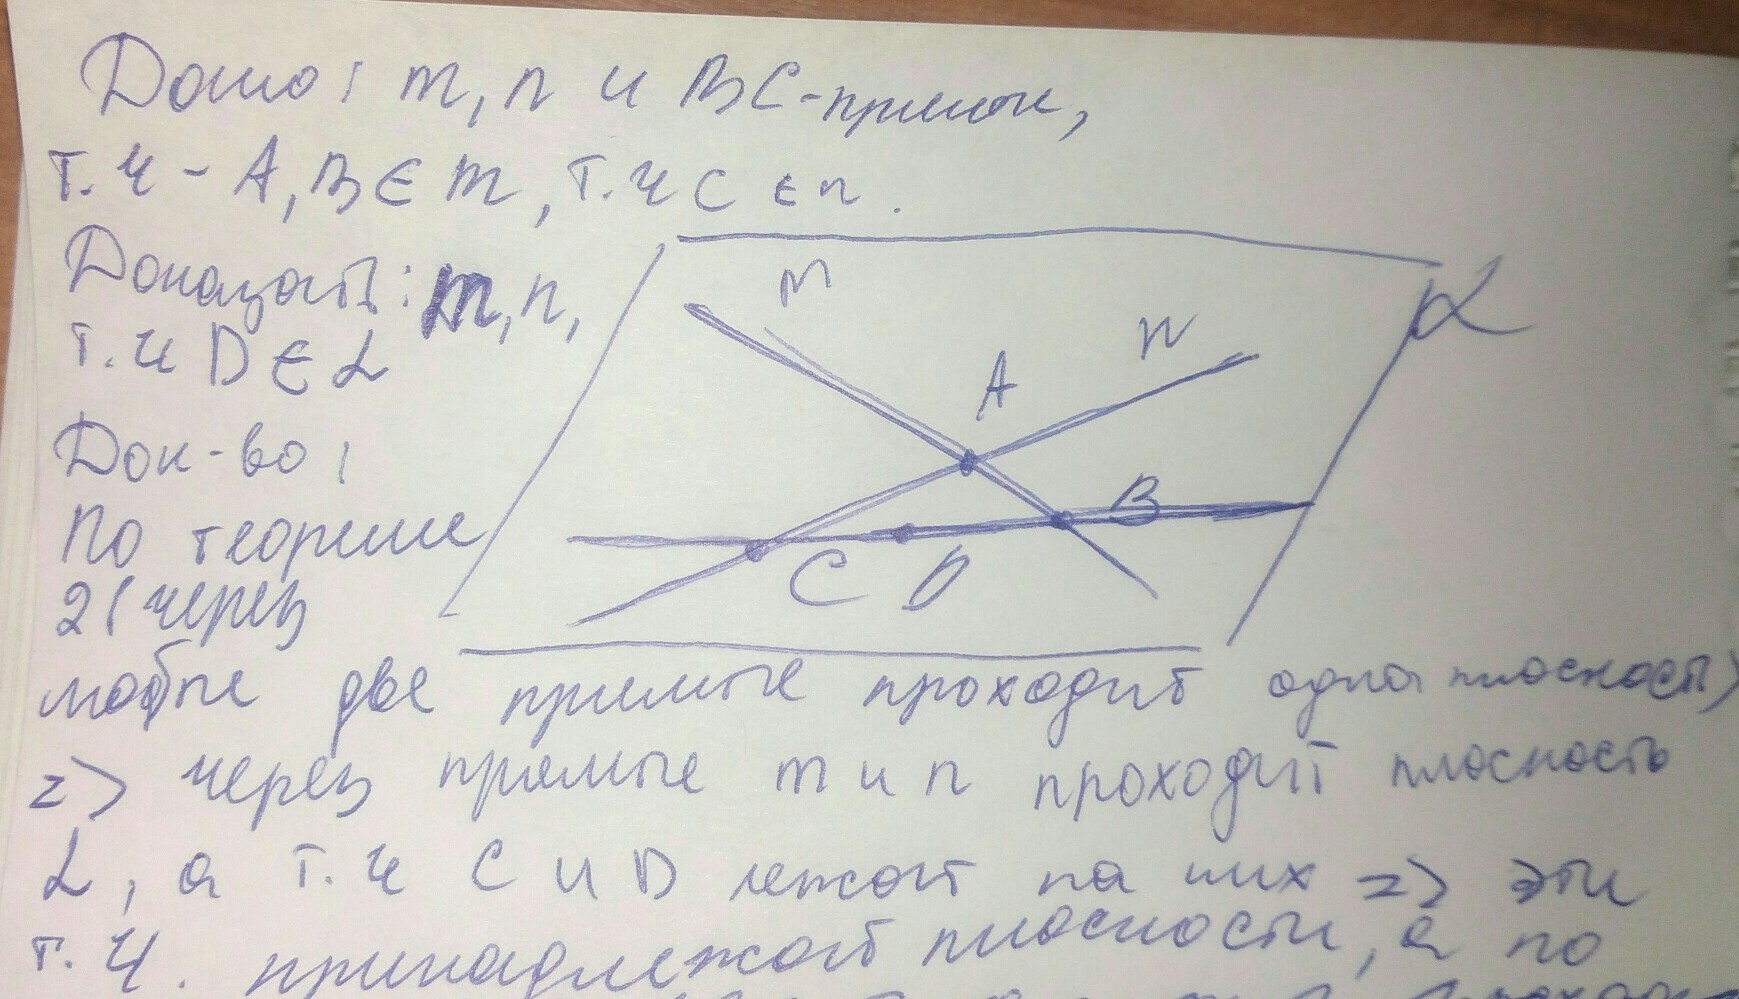 Дано: m, n и BC-прямые,
т.ч - A, B ∈ m, т.ч C ∈ n.
Доказать: m, n,
т.ч D ∈ α
m
n
α
A
B
C D
Док-во:
По теореме
2 (через
любые две прямые проходит одна плоскость)
=> через прямые m и n проходит плоскость
α, а т.ч C и D лежат на них => эти
т.ч. принадлежат плоскости, а по